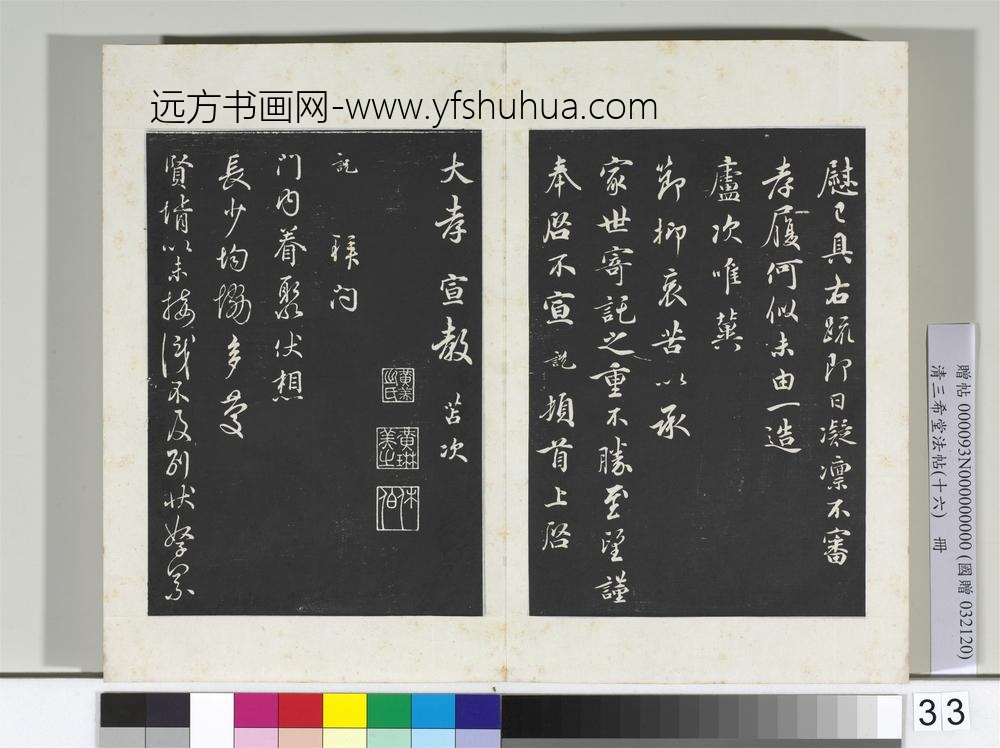 远方书画网-www.yfshuhua.com
慰已具右疏即日凝凛不審
孝履何似未由一造
廬次唯冀
節抑哀苦以承
家世寄託之重不勝至望謹
奉啓不宣 説 頓首上啓
大孝宣教 苫次
説 拜問
門内眷聚伏想
長少均協多慶
賢壻以未接識不及別状
黄美之氏
黄琳美之
休伯
贈帖 000093N000000000 (國贈 032120)
清三希堂法帖(十六) 冊
33